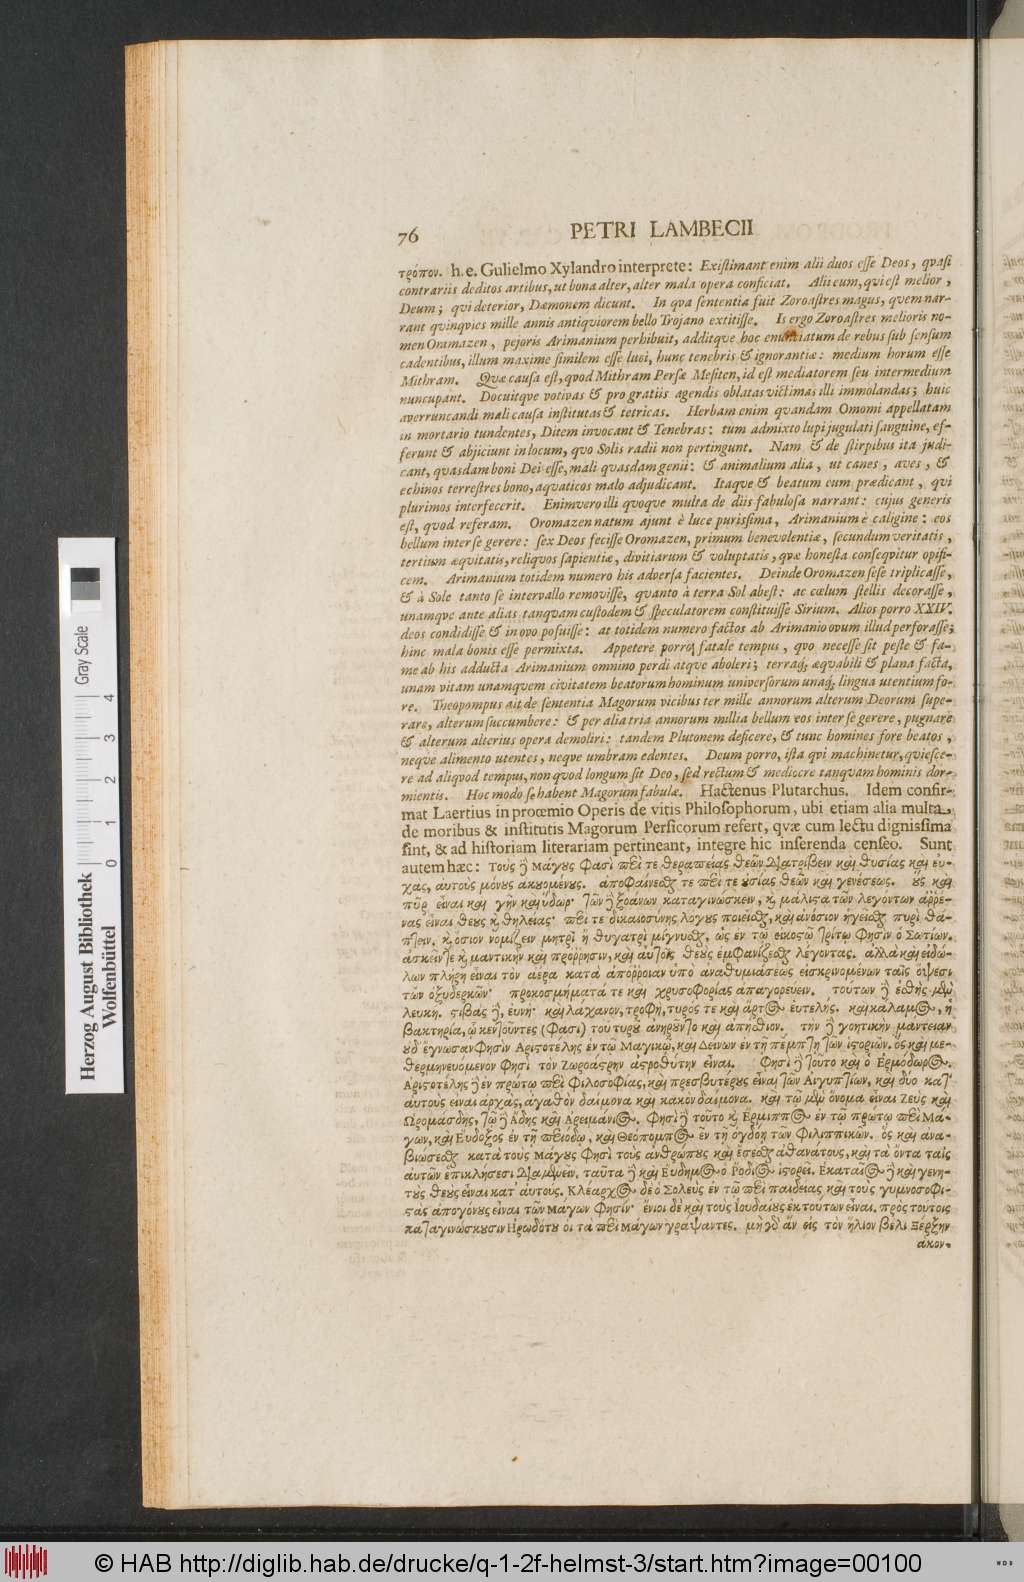 76
PETRI LAMBECII
τρόπον. h. e. Gulielmo Xylandro interprete: Existimant enim alii duos esse Deos, qvasi
contrariis deditos artibus, ut bona alter, alter mala opera conficiat. Alii eum, qui est melior,
Deum; qvi deterior, Dæmonem dicunt. In qva sententia fuit Zoroastres magus, qvem nar-
rant qvinqvies mille annis antiqviorem bello Trojano extitisse. Is ergo Zoroastres melioris no-
men Oramazen, pejoris Arimanium perhibuit, additqve hoc enunciatum de rebus sub sensum
cadentibus, illum maxime similem esse luci, hunc tenebris & ignorantiæ: medium horum esse
Mithram. Quæ causa est, qvod Mithram Persæ Mesiten, id est mediatorem seu intermedium
nuncupant. Docuitqve votivas & pro gratiis agendis oblatas victimas illi immolandas; huic
averruncandi mali causa institutas & tetricas. Herbam enim qvandam Omomi appellatam
in mortario tundentes, Ditem invocant & Tenebras: tum admixto lupi jugulati sanguine, ef-
ferunt & abjiciunt in locum, qvo Solis radii non pertingunt. Nam & de stirpibus ita judi-
cant, qvasdam boni Dei esse, mali qvasdam genii: & animalium alia, ut canes, aves, &
echinos terrestres bono, aqvaticos malo adjudicant. Itaqve & beatum eum prædicant, qvi
plurimos interfecerit. Enimvero illi qvoque multa de diis fabulosa narrant: cujus generis
est, qvod referam. Oromazen natum ajunt è luce purissima, Arimanium è caligine: eos
bellum inter se gerere: sex Deos fecisse Oromazen, primum benevolentiæ, secundum veritatis,
tertium æqvitatis, reliqvos sapientiæ, divitiarum & voluptatis, qvæ honesta conseqvitur opifi-
cem. Arimanium totidem numero his adversa facientes. Deinde Oromazen sese triplicasse,
& à Sole tanto se intervallo removisse, qvanto à terra Sol abest: ac cœlum stellis decorasse,
unamqve ante alias tanqvam custodem & speculatorem constituisse Sirium. Alios porro XXIV.
deos condidisse & in ovo posuisse: at totidem numero factos ab Arimanio ovum illud perforasse;
hinc mala bonis esse permixta. Appetere porro fatale tempus, qvo necesse sit peste & fa-
me ab his adducta Arimanium omnino perdi atqve aboleri; terraq; æqvabili & plana facta,
unam vitam unamqvem civitatem beatorum hominum universorum unaq; lingua utentium fo-
re. Theopompus ait de sententia Magorum vicibus ter mille annorum alterum Deorum supe-
rare, alterum succumbere: & per alia tria annorum millia bellum eos inter se gerere, pugnare
& alterum alterius opera demoliri: tandem Plutonem deficere, & tunc homines fore beatos,
neqve alimento utentes, neqve umbram edentes. Deum porro, ista qvi machinetur, qviesce-
re ad aliqvod tempus, non qvod longum sit Deo, sed rectum & mediocre tanqvam hominis dor-
mientis. Hoc modo se habent Magorum fabulæ. Hactenus Plutarchus. Idem confir-
mat Laertius in proœmio Operis de vitis Philosophorum, ubi etiam alia multa
de moribus & institutis Magorum Persicorum refert, qvæ cum lectu dignissima
sint, & ad historiam literariam pertineant, integre hic inserenda censeo. Sunt
autem hæc: Τοὺς ἢ Μάγους φασὶ περί τε θεραπείας θεῶν διατρίβειν καὶ θυσίας καὶ εὐ-
χας, αὐτοὺς μόνους ἀκουομένους. ἀποφαίνεσθαι τε περί τε οὐσίας θεῶν καὶ γενέσεως. οὓς καὶ
πῦρ εἶναι καὶ γῆν καὶ ὕδωρ· τῶν ἢ ξοάνων καταγινώσκειν, κ μάλιστα τῶν λεγόντων ἄρρε-
νας εἶναι θεοὺς κ θηλείας· περί τε δικαιοσύνης λόγους ποιεῖσθαι, καὶ ἀνόσιον ἡγεῖσθαι πυρὶ θά-
πτειν. κ ὅσιον νομίζειν μητρὶ ἢ θυγατρὶ μίγνυσθαι, ὡς ἐν τῷ εἰκοστῷ τρίτῳ φησὶν ὁ Σωτίων.
ἀσκεῖν τε κ μαντικὴν καὶ πρόρρησιν, καὶ αὐτοῖς θεοὺς ἐμφανίζεσθαι λέγοντας. ἀλλὰ καὶ εἰδώ-
λων πλήρη εἶναι τὸν ἀέρα κατὰ ἀπόρροιαν ὑπὸ ἀναθυμιάσεως εἰσκρινομένων ταῖς ὄψεσι
τῶν ὀξυδερκῶν· προκοσμήματά τε καὶ χρυσοφορίας ἀπαγορεύειν. τούτων ἢ ἐσθὴς μὲν
λευκὴ. στιβὰς ἢ, εὐνή· καὶ λάχανον, τροφή, τυρός τε καὶ ἄρτος εὐτελής. καὶ κάλαμος, ἡ
βακτηρία, ᾧ κεντοῦντες (φασὶ) τοῦ τυροῦ ἀνῃροῦντο καὶ ἀπήσθιον. τὴν ἢ γοητικὴν μαντείαν
οὐδ' ἔγνωσαν φησὶν Αριστοτέλης ἐν τῷ Μαγικῷ, καὶ Δείνων ἐν τῇ πέμπτῃ τῶν ἱστοριῶν. ὃς καὶ με-
θερμηνευόμενον φησὶ τὸν Ζωροάστρην ἀστροθύτην εἶναι. φησὶ ἢ τοῦτο καὶ ὁ Ερμόδωρος.
Αριστοτέλης ἢ ἐν πρώτῳ περὶ φιλοσοφίας, καὶ πρεσβυτέρους εἶναι τῶν Αἰγυπτίων, καὶ δύο κατ'
αὐτοὺς εἶναι ἀρχὰς, ἀγαθὸν δαίμονα καὶ κακὸν δαίμονα. καὶ τῷ μὲν ὄνομα εἶναι Ζεὺς καὶ
Ωρομάσδης, τῷ ἢ ᾅδης καὶ Αρειμάνιος. φησὶ ἢ τοῦτο κ Ερμιππος ἐν τῷ πρώτῳ περὶ Μά-
γων, καὶ Εὔδοξος ἐν τῇ περιόδῳ, καὶ Θεόπομπος ἐν τῇ ὀγδόῃ τῶν Φιλιππικῶν. ὃς καὶ ἀνα-
βιώσεσθαι κατὰ τοὺς Μάγους φησὶ τοὺς ἀνθρώπους καὶ ἔσεσθαι ἀθανάτους, καὶ τὰ ὄντα ταῖς
αὐτῶν ἐπικλήσεσι διαμένειν. ταῦτα ἢ καὶ Εὔδημος ὁ Ῥόδιος ἱστορεῖ. Εκαταῖος ἢ καὶ γενη-
τοὺς θεοὺς εἶναι κατ' αὐτούς. Κλέαρχος δὲ ὁ Σολεὺς ἐν τῷ περὶ παιδείας καὶ τοὺς γυμνοσοφι-
στὰς ἀπογόνους εἶναι τῶν Μάγων φησίν· ἔνιοι δὲ καὶ τοὺς Ιουδαίους ἐκ τούτων εἶναι. πρὸς τούτοις
καταγινώσκουσιν Ηροδότου οἱ τὰ περὶ Μάγων γράψαντες. μὴ γδ ἂν εἰς τὸν ἥλιον βέλι Ξέρξην
ἀκον-
Herzog August Bibliothek
Wolfenbüttel
0 1 2 3 4
Gray Scale
© HAB http://diglib.hab.de/drucke/q-1-2f-helmst-3/start.htm?image=00100